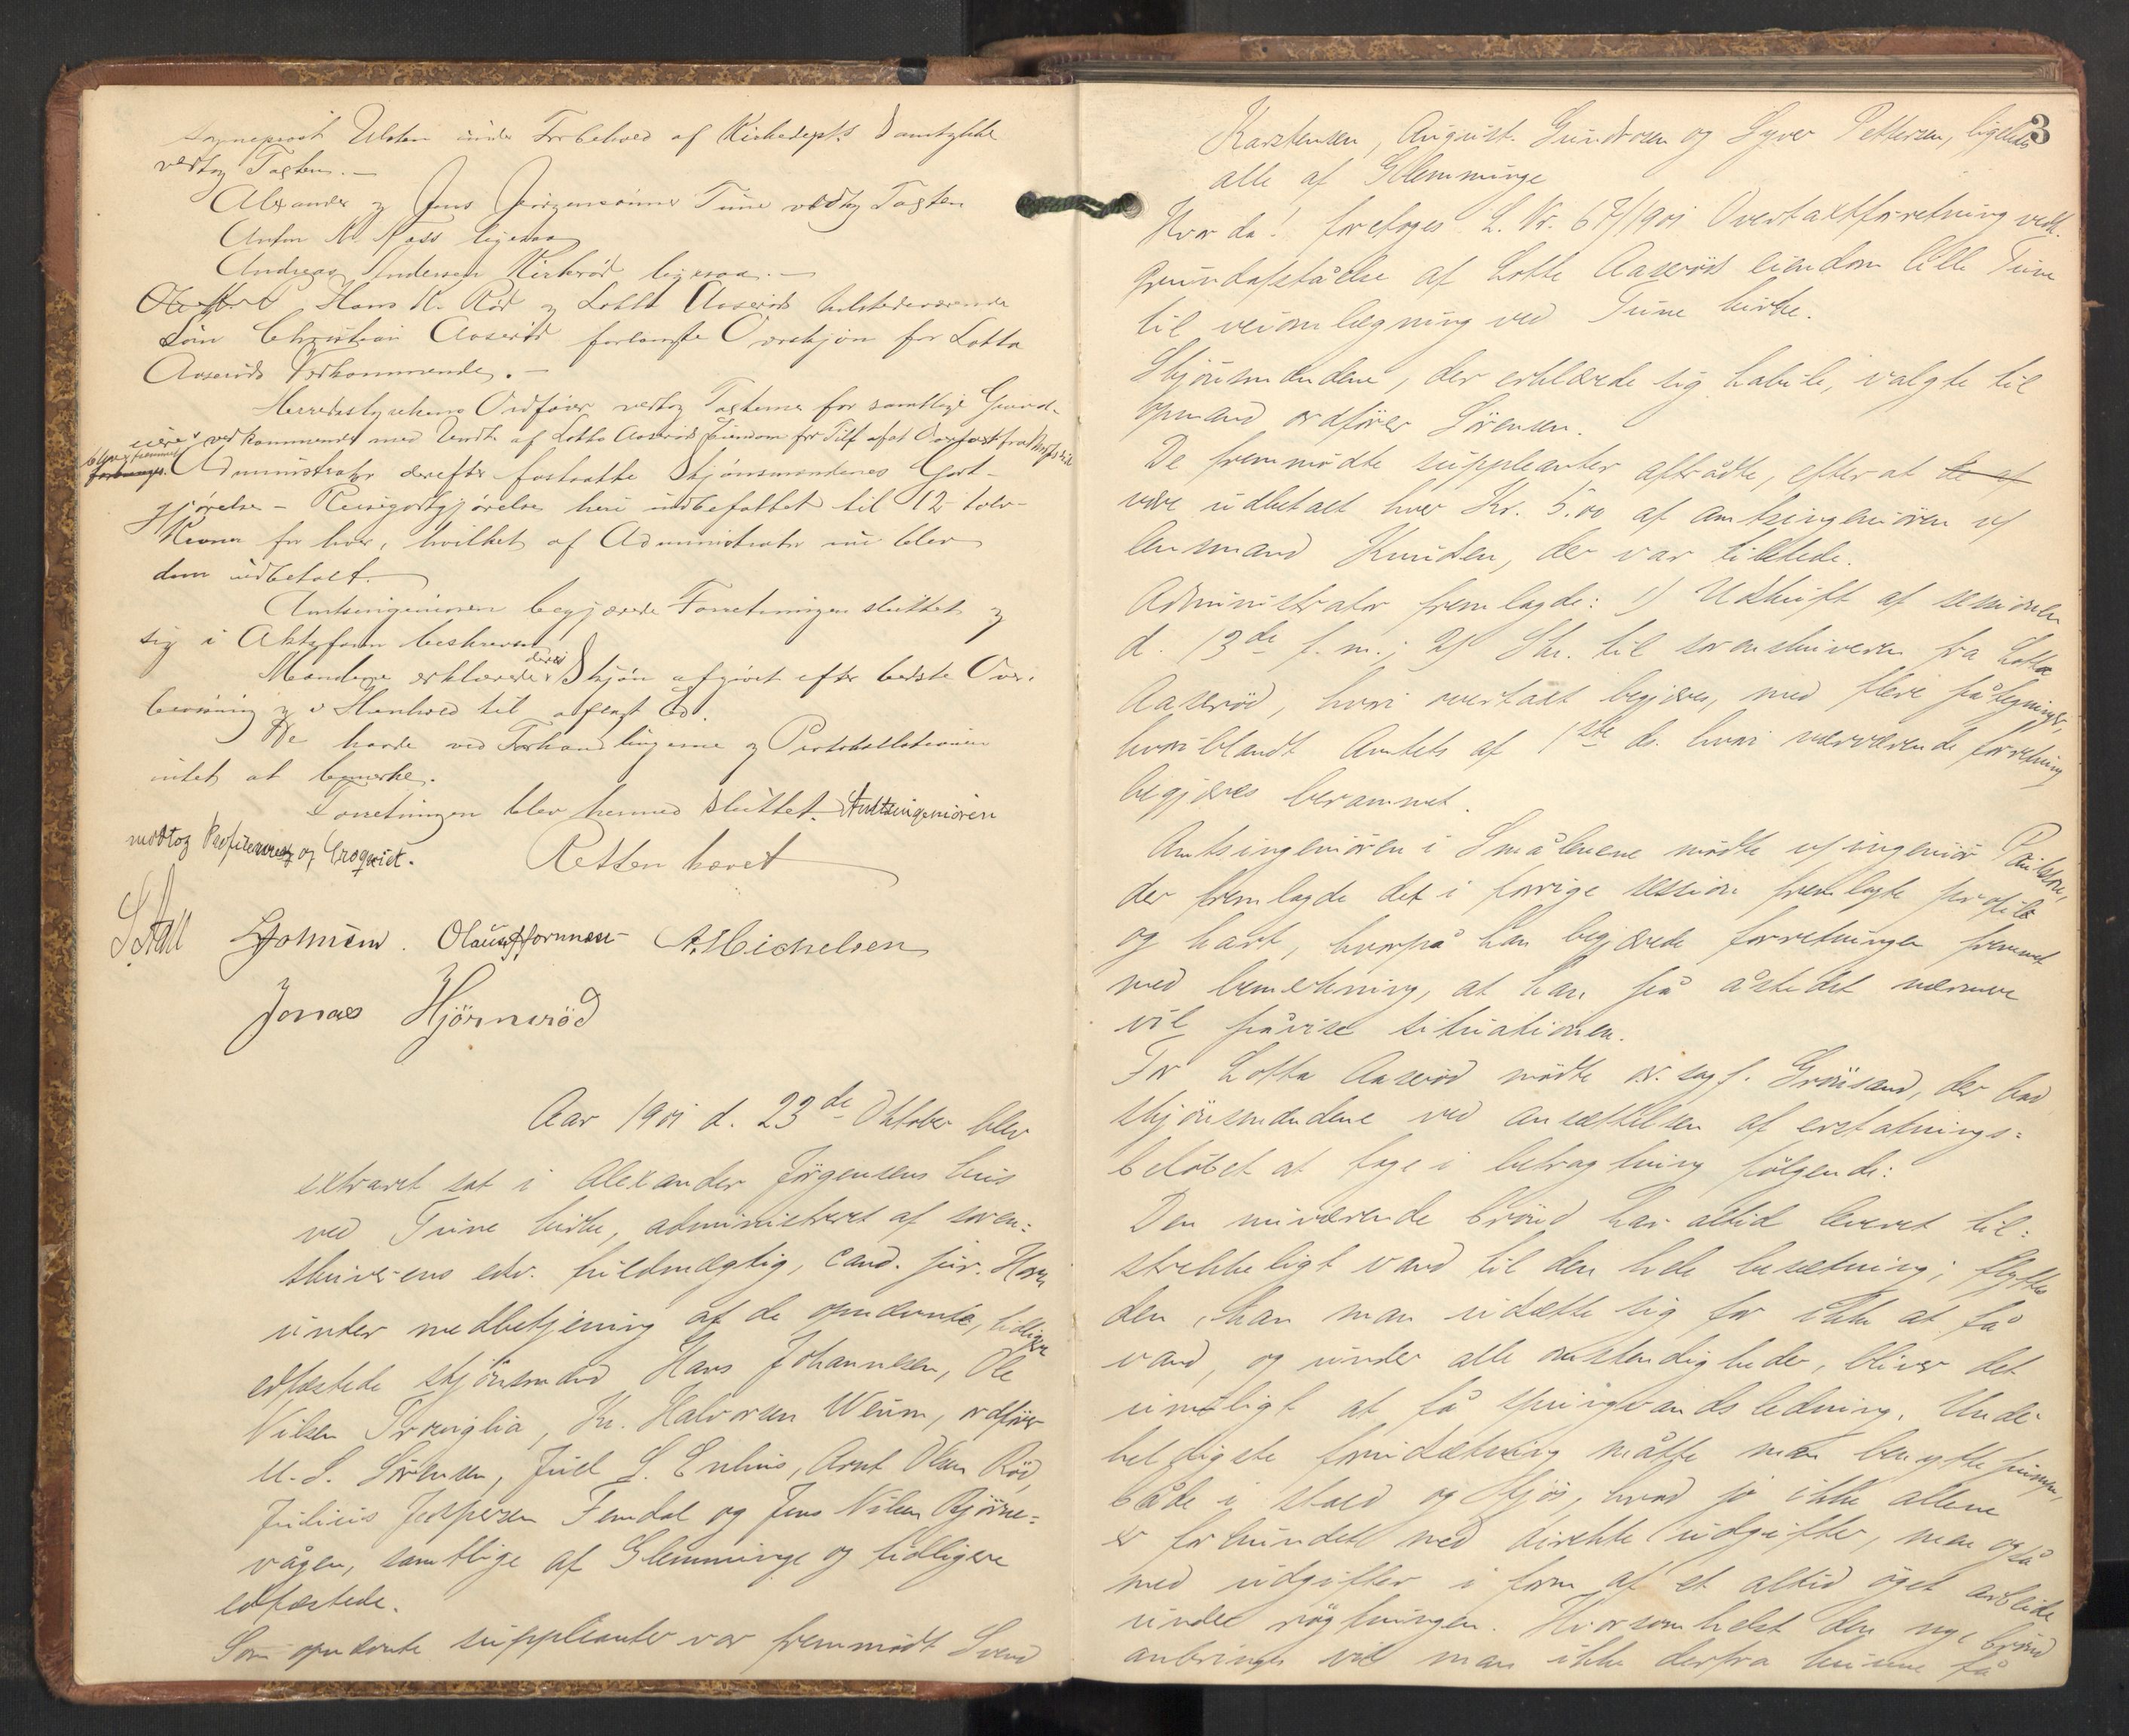 Sogneprest Ulsten under Forbehold af Kirkedepts Samtykke
vedtog Taxten.—
Alexander og Jens Jörgensönner Tune vedtog Taxten
Anton M. Moss ligesaa
Andreas Andersen Kirkeröd ligesaa.—
Hans K. Röd og Lotta Aaseröds tilstedeværende
Sön Christian Aaseröd forlangte Overskjön for Lotta
Aaseröds Vedkommende.—
Herredsstyrelsens Ordförer vedtog Taxterne for samtlige Grund-
eieres vedkommende med Undt. af Lotta Aaseröds Eiendom for Tilf. af at Overtaxt fra
blev fremmet
forlanges. Administrator derefter fastsatte Skjönsmændenes Godt-
gjörelse – Reisegodtgjörelse heri indbefattet til 12 – tolv –
Kroner for hver, hvilket af Administrator nu blev
dem udbetalt.
Amtsingeniören begjærede Forretningen sluttet og
sig i Aktsform beskrevet
Mændene erklærede deres Skjön afgivet efter bedste Over-
bevisning og i Henhold til aflagt Ed.
De havde ved Forhandlingerne og Protokollationen
intet at bemerke.
Forretningen blev hermed sluttet. Amtsingeniören
modtog Profilerne og Croquiet.
Retten hævet
S. Aall Johnsen. Olaus Hornnes A. Michelsen
Jonas Hjörneröd
Aar 1901 d. 23de Oktober blev
extraret sat i Alexander Jörgensens hus
ved Tune kirke, administreret af soren-
skriverens edv. fuldmægtig, cand. jur. Horn
under medbetjening af de opnævnte, tidligere
edfæstede skjönsmænd Hans Johannesen, Ole
Nilsen Trænglia, Kr. Halvorsen Weum, ordförer
M. S. Sörensen, Juel L. Enhus, Arnt Olsen Röd,
Julius Jespersen Femdal og Jens Nilsen Björne-
vågen, samtlige af Glemminge og tidligere
edfæstede.
Som opnævnte suppleanter var fremmödt Svend
3
Karstensen, August Gundersen og Syver Pettersen, ligeledes
alle af Glemminge
Hvor da! foretoges L. Nr. 67/1901 Overtaxtforretning vedk.
grundafståelse af Lotte Aaseröds eiendom Lille Tune
til veiomlægning ved Tune kirke.
Skjönsmændene, der erklærede sig habile, valgte til
opmand ordförer Sörensen.
De fremmödte suppleanter aftrådte, efter at de af
være udbetalt hver Kr. 5.00 af amtsingeniören v/
lensmand Knudsen, der var tilstede.
Administrator fremlagde: 1) Udskrift af sessionen
d. 13de f. m.; 2) Skr. til sorenskriveren fra Lotta
Aaseröd, hvori overtaxt begjæres, med flere påtegninger,
hvoriblandt Amtets af 1ste ds. hvori nærværende forretning
begjæres berammet.
Amtsingeniören i Smålenene mödte v/ ingeniör Paulsen,
der fremlagde det i forrige session fremlagte profil
og kart, hvorpå han begjærede forretningen fremmet
med bemerkning, at han på åstedet nærmere
vil påvise situationen.
For Lotta Aaseröd mödte or. sagf. Grönsand, der bad
skjönsmændene ved ansættelsen af erstatnings-
belöbet at tage i betragtning fölgende:
Den nuværende brönd har altid levert til-
strekkeligt vand til den hele besætning; flyttes
den, kan man udsætte sig for ikke at få
vand, og under alle omstendigheder, bliver det
umuligt at få springvandsledning. Under
heldigste forudsætning måtte man benytte pumper,
både i stald og fjös, hvad jo ikke allene
er forbundet med direkte udgifter, men også
med udgifter i form af et altid öget arbeide
under rögtningen. Hvorsomhelst den nye brönd
anbringes vil man ikke derfra kunne få